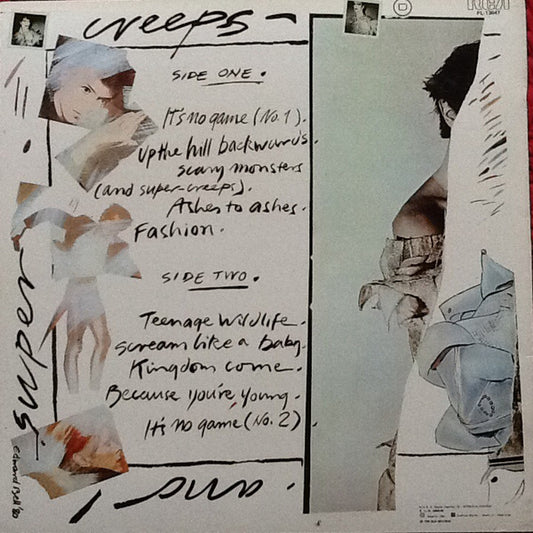 creeps -
RCA
PL-13647
SIDE ONE.
It's no game (No. 1).
Up the hill backwards.
scary monsters
(and super-creeps).
Ashes to ashes.
Fashion.
SIDE TWO.
Teenage Wildlife.
Scream like a baby.
Kingdom come.
Because you're, young.
It's no game (No. 2).
super
and
edward Bell '80